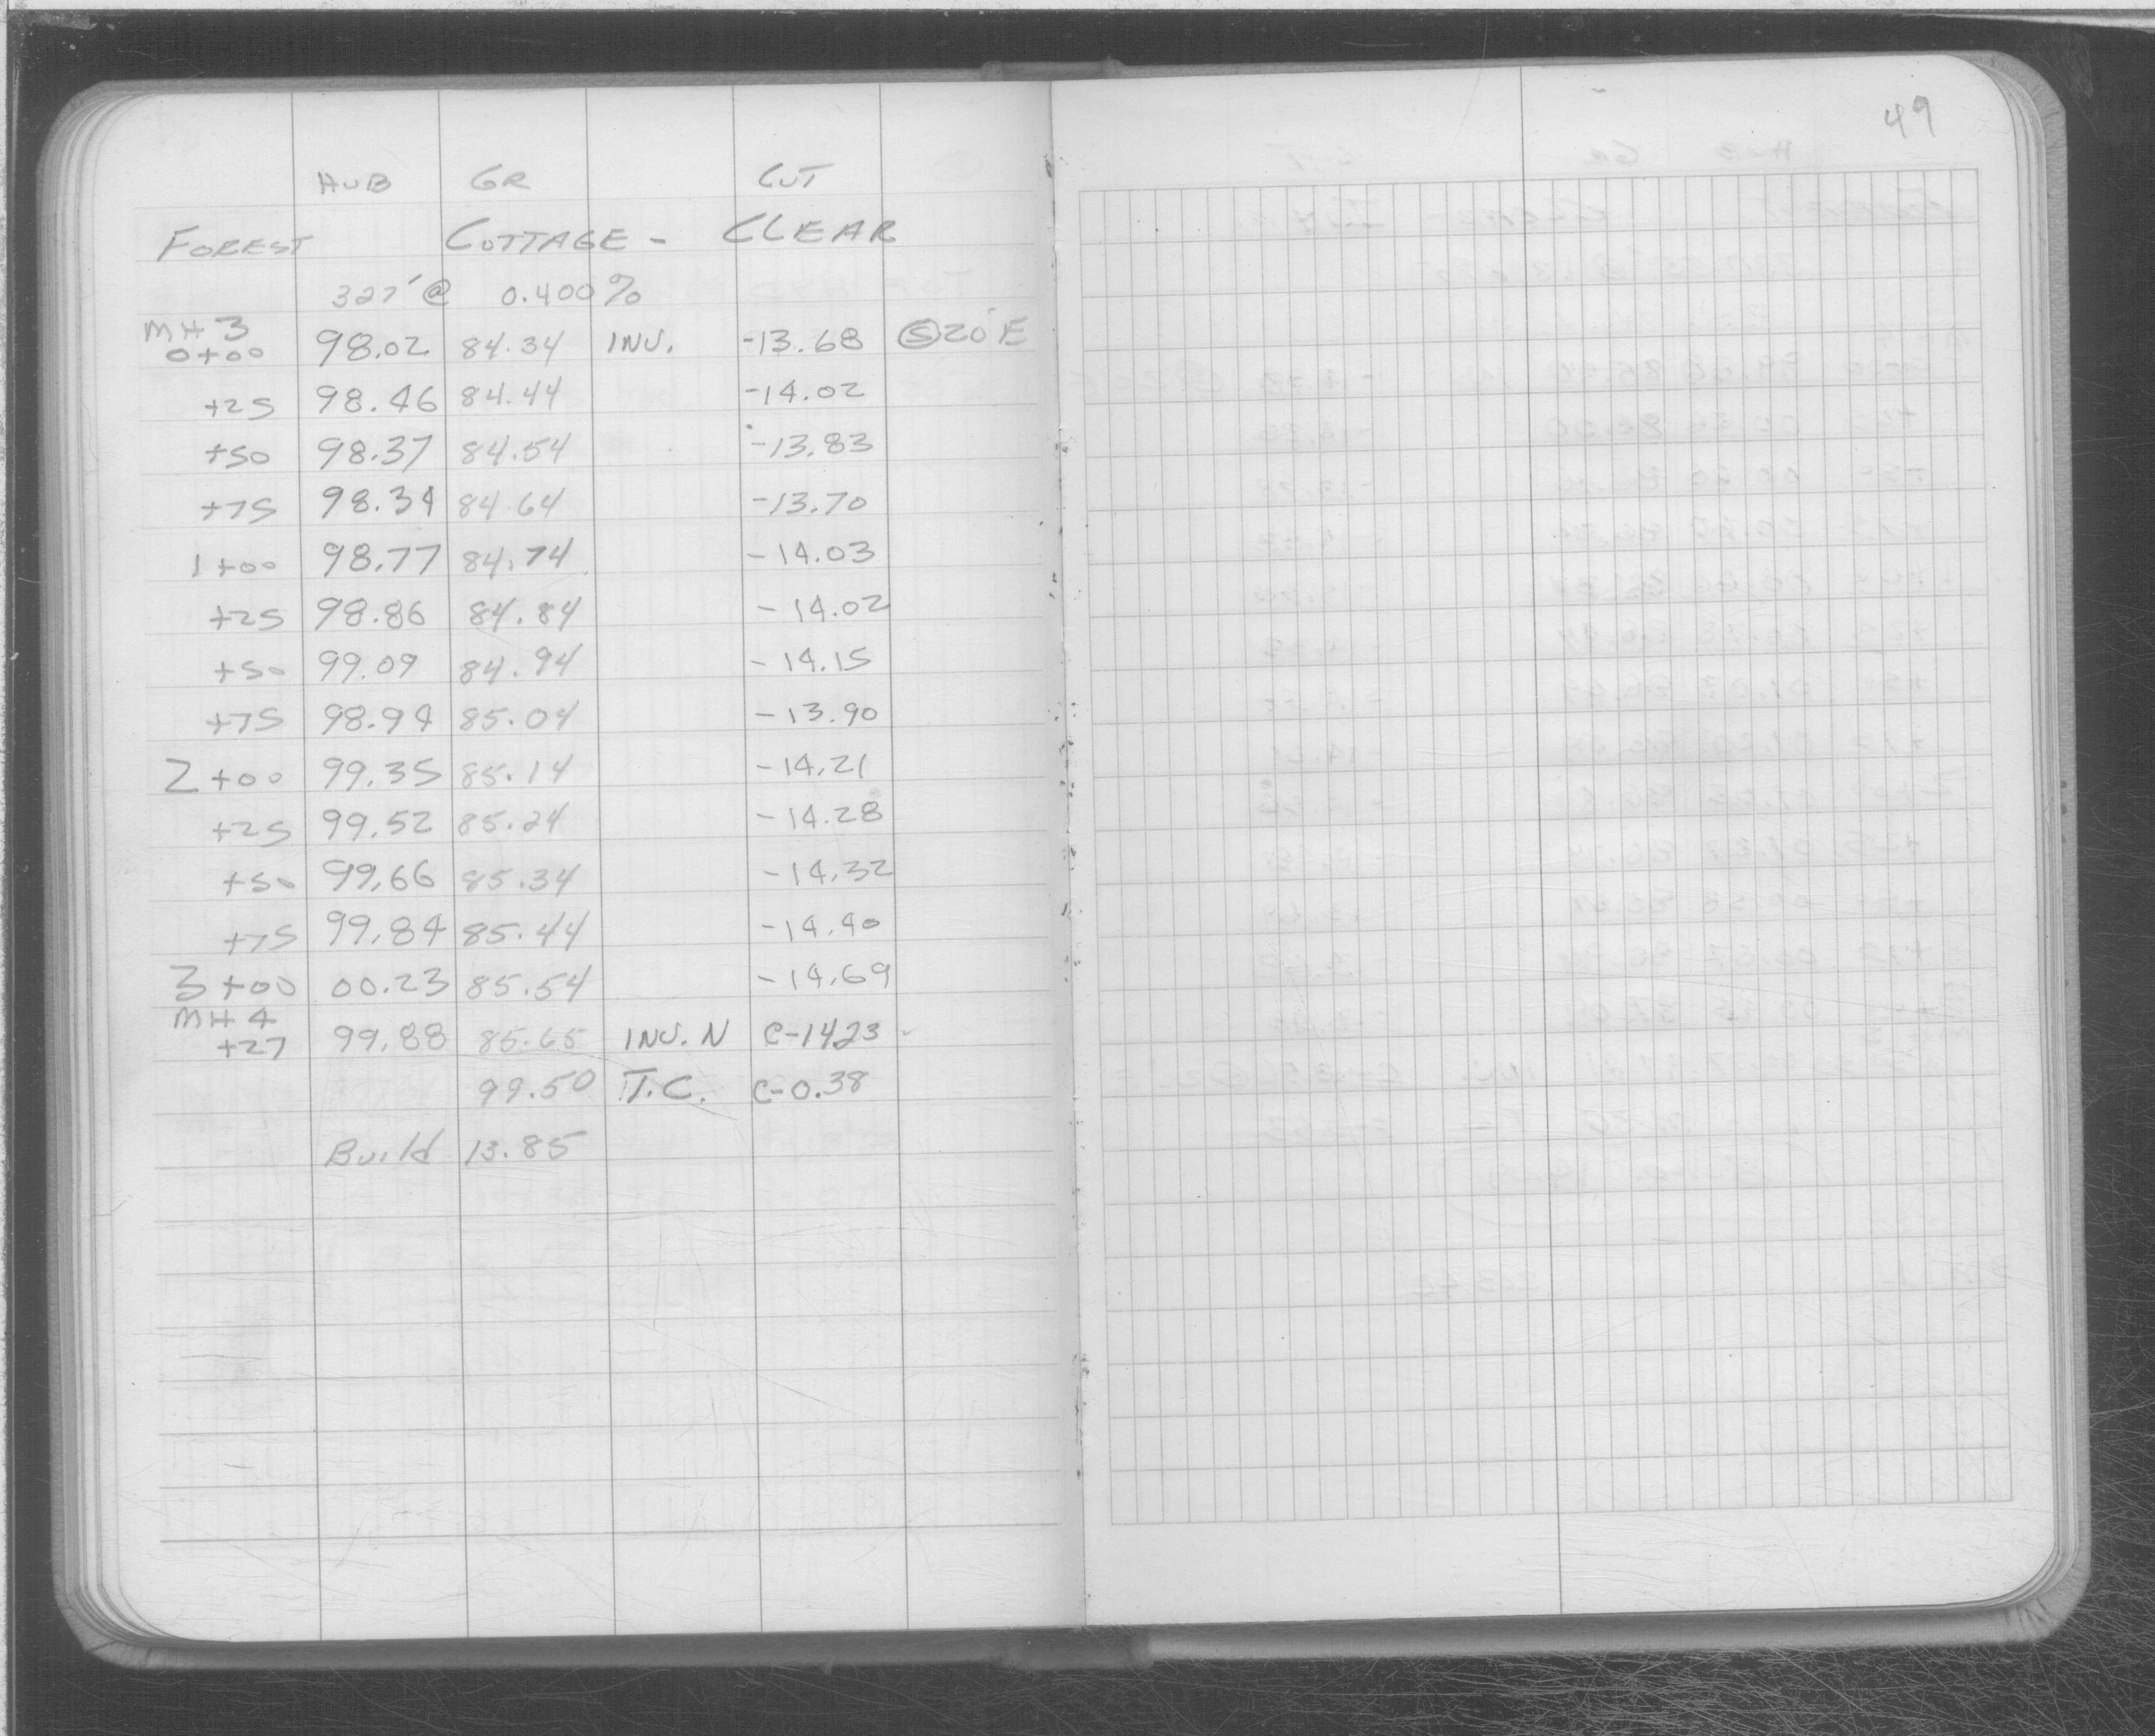 49
HUB GR CUT
FOREST COTTAGE - CLEAR
327' @ 0.400%
MH 3
0+00 98.02 84.34 INV. -13.68 Ⓢ20'E
+25 98.46 84.44 -14.02
+50 98.37 84.54 -13.83
+75 98.34 84.64 -13.70
1+00 98.77 84.74 -14.03
+25 98.86 84.84 -14.02
+50 99.09 84.94 -14.15
+75 98.94 85.04 -13.90
2+00 99.35 85.14 -14.21
+25 99.52 85.24 -14.28
+50 99.66 85.34 -14.32
+75 99.84 85.44 -14.40
3+00 00.23 85.54 -14.69
MH 4
+27 99.88 85.65 INV. N C-14.23
99.50 T.C. C-0.38
Build 13.85